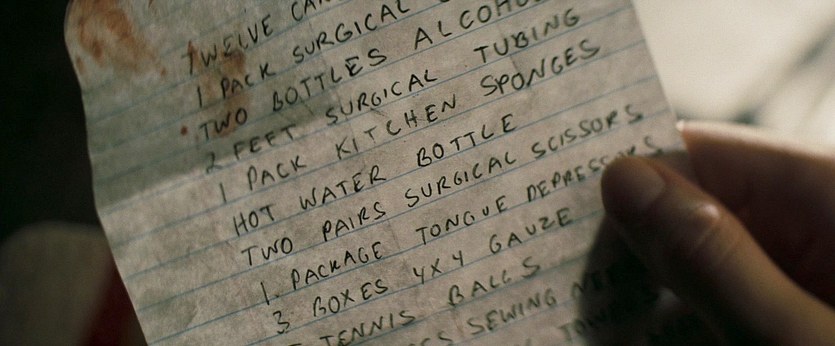 TWELVE
1 PACK SURGICAL
TWO BOTTLES ALCOHOL
2 FEET SURGICAL TUBING
1 PACK KITCHEN SPONGES
HOT WATER BOTTLE
TWO PAIRS SURGICAL SCISSORS
1 PACKAGE TONGUE DEPRESSORS
3 BOXES 4X4 GAUZE
TENNIS BALLS
SEWING